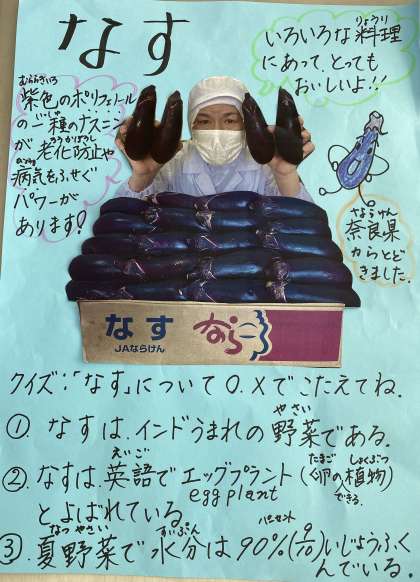 なす
いろいろな料理
りょうり
にあって、とっても
おいしいよ!!
むらさきいろ
紫色のポリフェノール
の一種のナスニン
いっしゅ
が老化防止や
ろうかぼうし
病気をふせぐ
パワーが
あります!
ならけん
奈良県
からとど
きました。
なす なら
JAならけん
クイズ:「なす」について○、×でこたえてね。
やさい
① なすは、インドうまれの野菜である。
えいご たまご しょくぶつ
② なすは、英語でエッグプラント(卵の植物)
eggplant
とよばれている。
なつやさい すいぶん パーセント
③ 夏野菜で水分は90%(9/10)いじょうふく
んでいる。